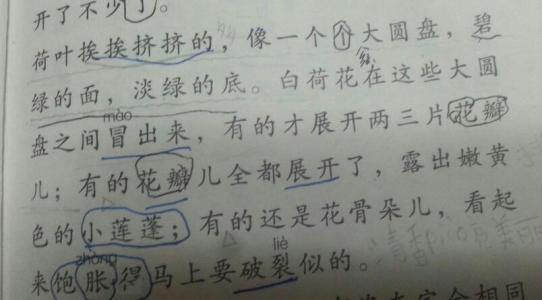 开了不少了。
荷叶挨挨挤挤的，像一个个大圆盘，碧
绿的面，淡绿的底。白荷花在这些大圆
mào
盘之间冒出来，有的才展开两三片花瓣
儿；有的花瓣儿全都展开了，露出嫩黄
色的小莲蓬；有的还是花骨朵儿，看起
zhàng liè
来饱胀得马上要破裂似的。
完全相同